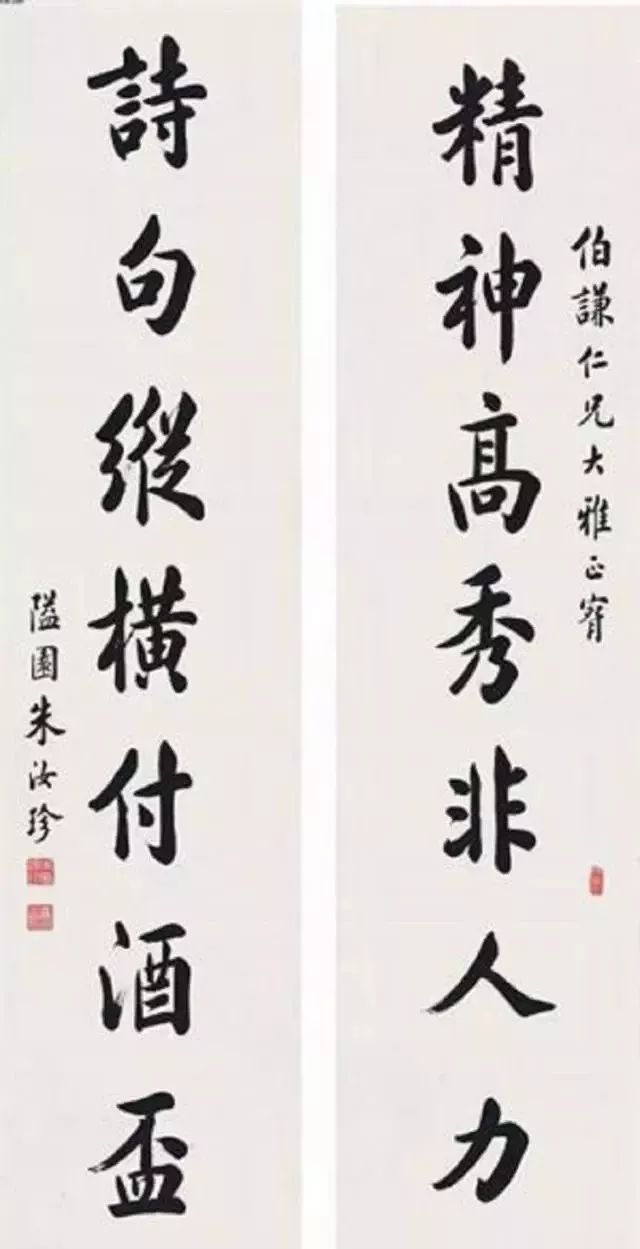 伯謙仁兄大雅正腕
精神高秀非人力
詩句縱橫付酒盃
隘園朱汝珍